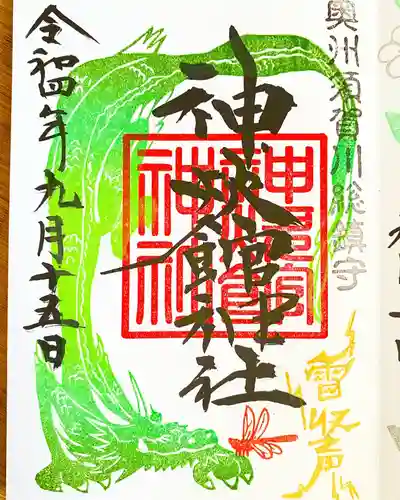 奥州須賀川総鎮守
神炊館神社
雷収声
令和四年九月十五日